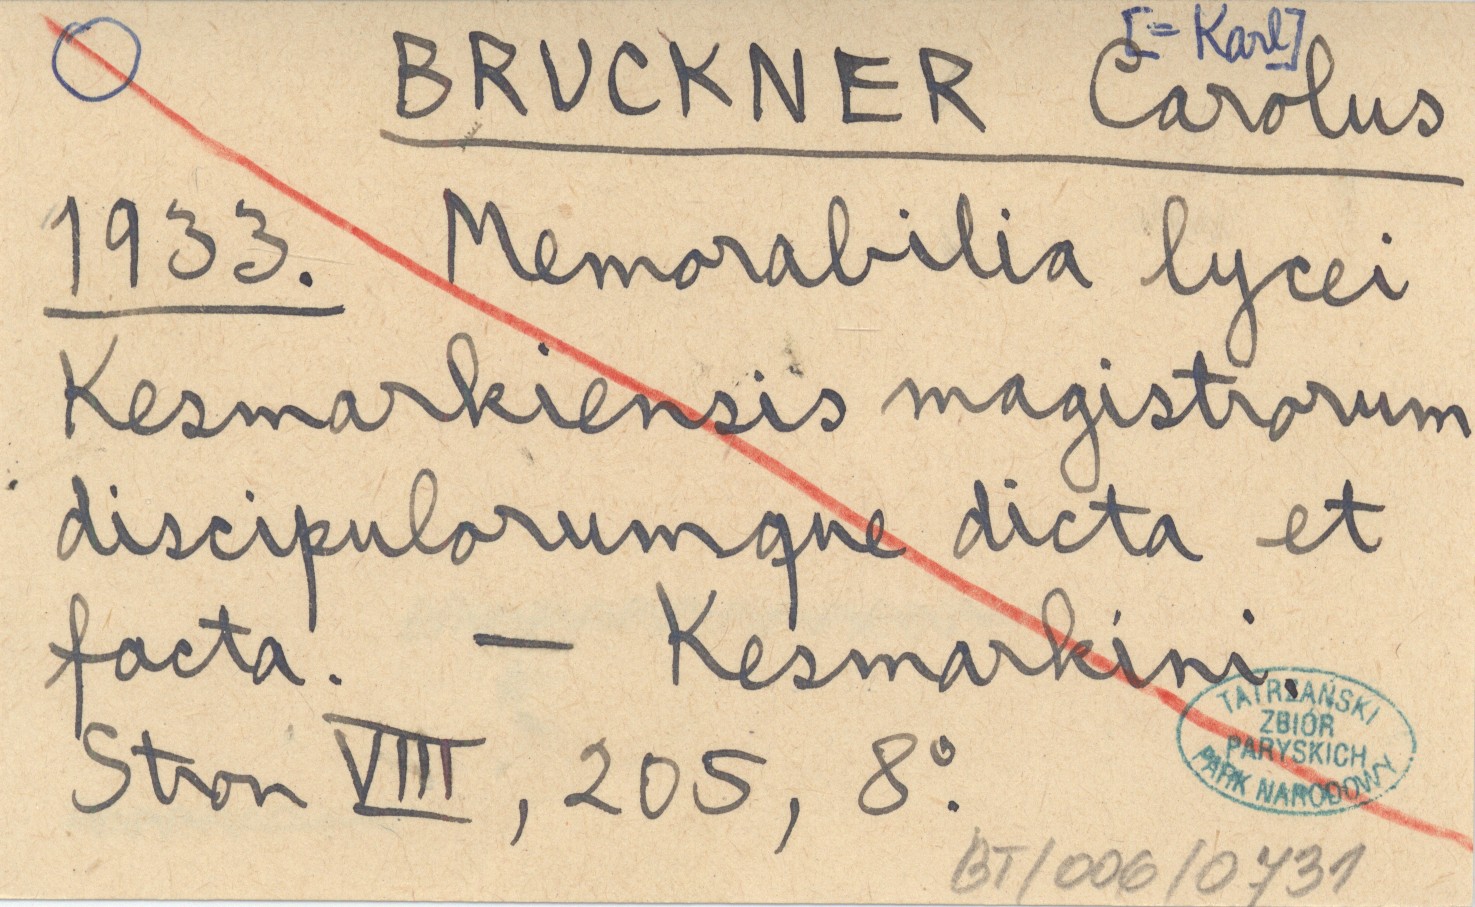 [= Karl]
BRUCKNER Carolus
1933. Memorabilia lycei
Kesmarkiensis magistrorum
discipulorumque dicta et
facta. — Kesmarkini.
Stron VIII, 205, 8º.
TATRZAŃSKI
ZBIÓR
PARYSKICH
PARK NARODOWY
BT/006/0731